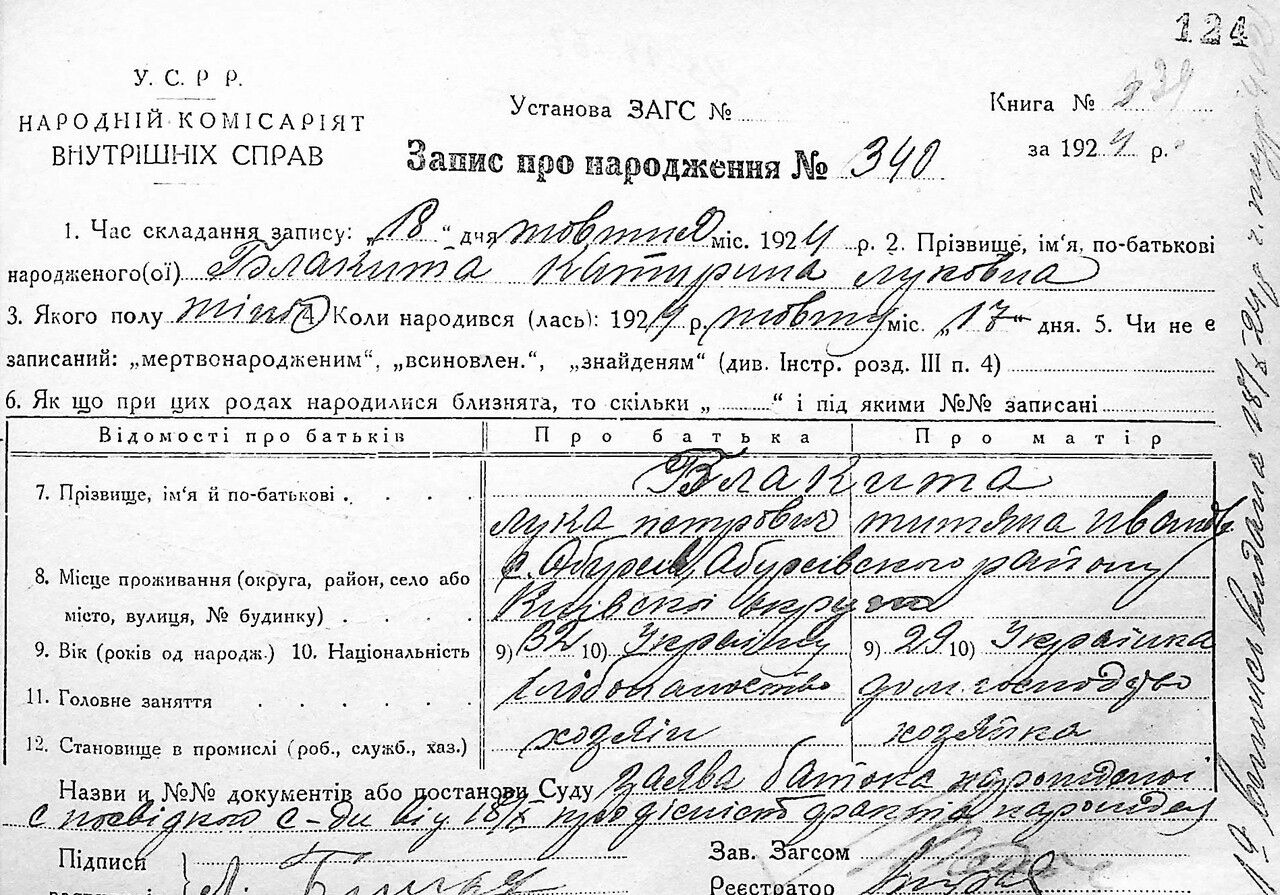 124
У. С. Р Р.
НАРОДНІЙ КОМІСАРІЯТ
ВНУТРІШНІХ СПРАВ
Установа ЗАГС №
Книга №
за 1924 р.
Запис про народження № 340
1. Час складання запису: „18“ дня жовтня міс. 1924 р. 2. Прізвище, ім'я, по-батькові
народженого(ої) Блакита Катерина Луковна
3. Якого полу жіноч 4. Коли народився (лась): 1924 р. жовтня міс. „17“ дня. 5. Чи не є
записаний: „мертвонародженим“, „всиновлен.“, „знайденям“ (див. Інстр. розд. III п. 4)
6. Як що при цих родах народилися близнята, то скільки „ “ і під якими №№ записані
Відомості про батьків Про батька Про матір
7. Прізвище, ім'я й по-батькові Блакита
Лука Петрович Титяна Иванов
8. Місце проживання (округа, район, село або с. Обухов, Абухівского району
місто, вулиця, № будинку) Київскої округи
9. Вік (років од народж.) 10. Національність 9) 32 10) Україну 9) 29 10) Українка
11. Головне заняття хлібопашество дом. господство
12. Становище в промислі (роб., служб., хаз.) хозяїн хозяйка
Назви и №№ документів або постанови Суду заява батька народженої
с посвідкою с-ди від 18/X про дісність факта народж
Підписи
Зав. Загсом
Реєстратор